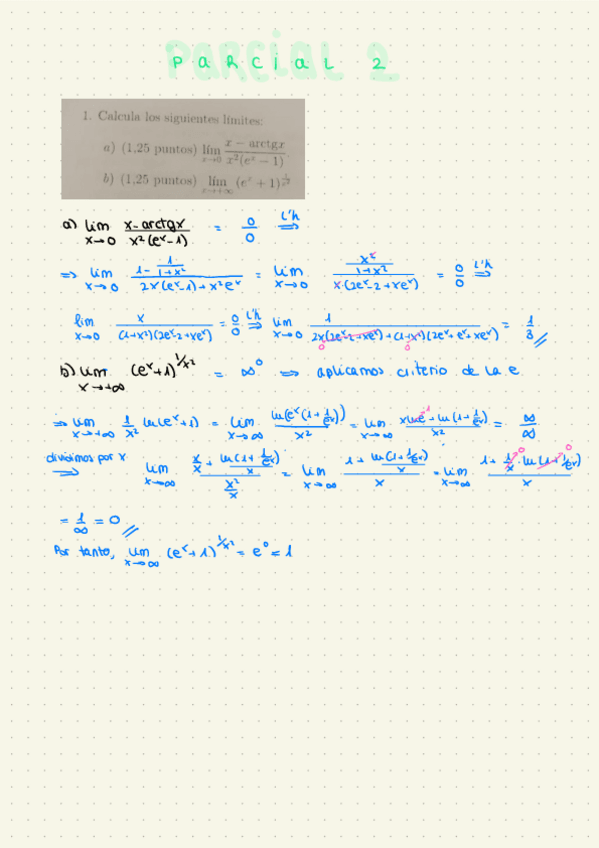 PARCIAL 2
1. Calcula los siguientes límites:
a) (1,25 puntos) lím x→0 (x − arctgx)/(x²(eˣ − 1))
b) (1,25 puntos) lím x→+∞ (eˣ + 1)^(1/x²)
a) lim x→0 (x-arctgx)/(x²(eˣ-1)) = 0/0 L'h ⇒
⇒ lim x→0 (1 - 1/(1+x²))/(2x(eˣ-1)+x²eˣ) = lim x→0 (x²/(1+x²))/(x·(2eˣ-2+xeˣ)) = 0/0 L'h ⇒
lim x→0 x/((1+x²)(2eˣ-2+xeˣ)) = 0/0 L'h ⇒ lim x→0 1/(2x(2eˣ-2+xeˣ)+(1+x²)(2eˣ+eˣ+xeˣ)) = 1/3 //
b) lim x→+∞ (eˣ+1)^(1/x²) = ∞⁰ ⇒ aplicamos criterio de la e
⇒ lim x→+∞ 1/x² ln(eˣ+1) = lim x→∞ ln(eˣ(1+1/eˣ))/x² = lim x→∞ (x ln e + ln(1+1/eˣ))/x² = ∞/∞
dividimos por x ⇒ lim x→∞ (x/x + ln(1+1/eˣ)/x)/(x²/x) = lim x→∞ (1 + ln(1+1/eˣ)/x)/x = lim x→∞ (1 + 1/x · ln(1+1/eˣ))/x
= 1/∞ = 0 //
Por tanto, lim x→∞ (eˣ+1)^(1/x²) = e⁰ = 1